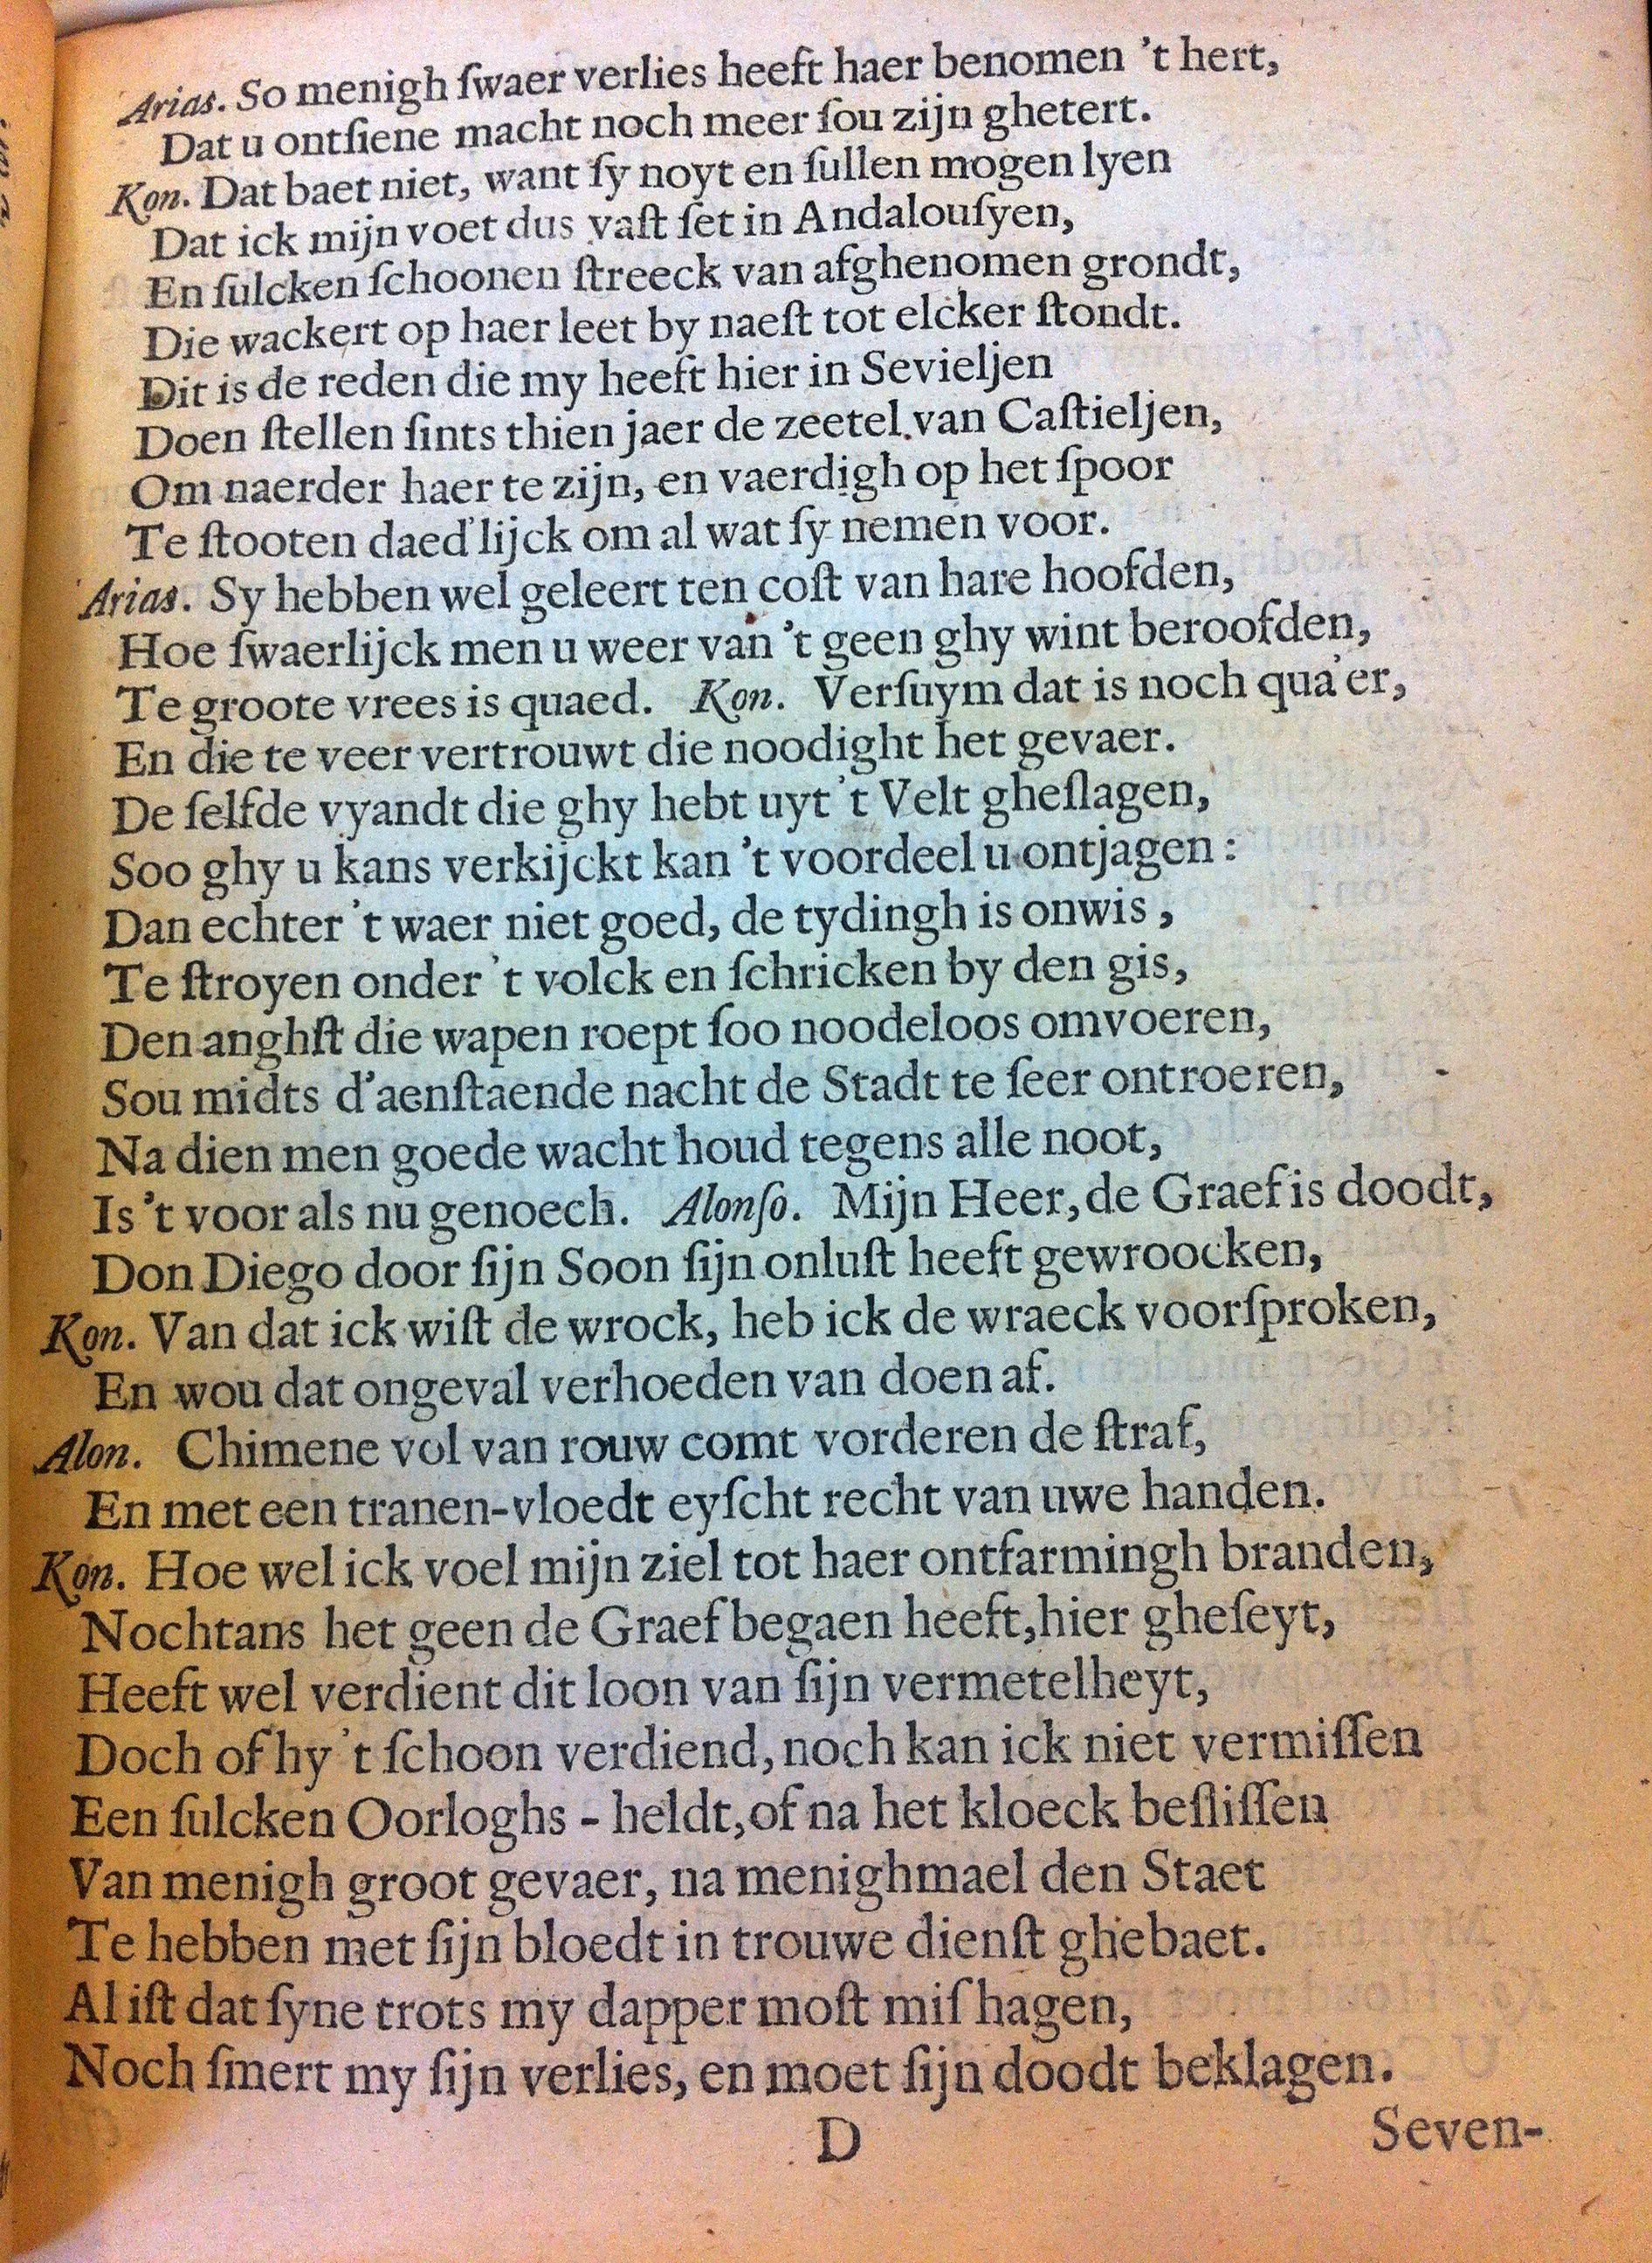 Arias. So menigh ſwaer verlies heeft haer benomen 't hert,
Dat u ontſiene macht noch meer ſou zijn ghetert.
Kon. Dat baet niet, want ſy noyt en ſullen mogen lyen
Dat ick mijn voet dus vaſt ſet in Andalouſyen,
En ſulcken ſchoonen ſtreeck van afghenomen grondt,
Die wackert op haer leet by naeſt tot elcker ſtondt.
Dit is de reden die my heeft hier in Sevieljen
Doen ſtellen ſints thien jaer de zeetel van Caſtieljen,
Om naerder haer te zijn, en vaerdigh op het ſpoor
Te ſtooten daed'lijck om al wat ſy nemen voor.
Arias. Sy hebben wel geleert ten coſt van hare hoofden,
Hoe ſwaerlijck men u weer van 't geen ghy wint beroofden,
Te groote vrees is quaed. Kon. Verſuym dat is noch qua'er,
En die te veer vertrouwt die noodight het gevaer.
De ſelfde vyandt die ghy hebt uyt 't Velt gheſlagen,
Soo ghy u kans verkijckt kan 't voordeel u ontjagen:
Dan echter 't waer niet goed, de tydingh is onwis,
Te ſtroyen onder 't volck en ſchricken by den gis,
Den anghſt die wapen roept ſoo noodeloos omvoeren,
Sou midts d'aenſtaende nacht de Stadt te ſeer ontroeren,
Na dien men goede wacht houd tegens alle noot,
Is 't voor als nu genoech. Alonſo. Mijn Heer, de Graef is doodt,
Don Diego door ſijn Soon ſijn onluſt heeft gewroocken,
Kon. Van dat ick wiſt de wrock, heb ick de wraeck voorſproken,
En wou dat ongeval verhoeden van doen af.
Alon. Chimene vol van rouw comt vorderen de ſtraf,
En met een tranen-vloedt eyſcht recht van uwe handen.
Kon. Hoe wel ick voel mijn ziel tot haer ontfarmingh branden,
Nochtans het geen de Graef begaen heeft, hier gheſeyt,
Heeft wel verdient dit loon van ſijn vermetelheyt,
Doch of hy 't ſchoon verdiend, noch kan ick niet vermiſſen
Een ſulcken Oorloghs - heldt, of na het kloeck beſliſſen
Van menigh groot gevaer, na menighmael den Staet
Te hebben met ſijn bloedt in trouwe dienſt ghebaet.
Al iſt dat ſyne trots my dapper moſt miſhagen,
Noch ſmert my ſijn verlies, en moet ſijn doodt beklagen.
D Seven-